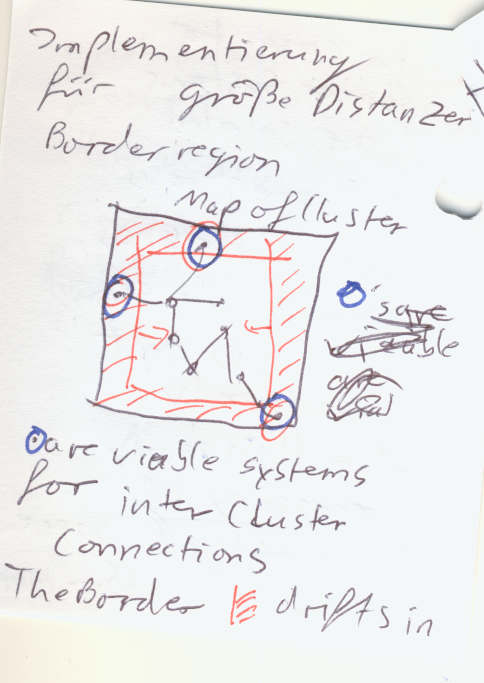 Implementierung
für große Distanzen
Border region
Map of Cluster
's are
viable
are
are viable systems
for inter Cluster
Connections
The Border drifts in